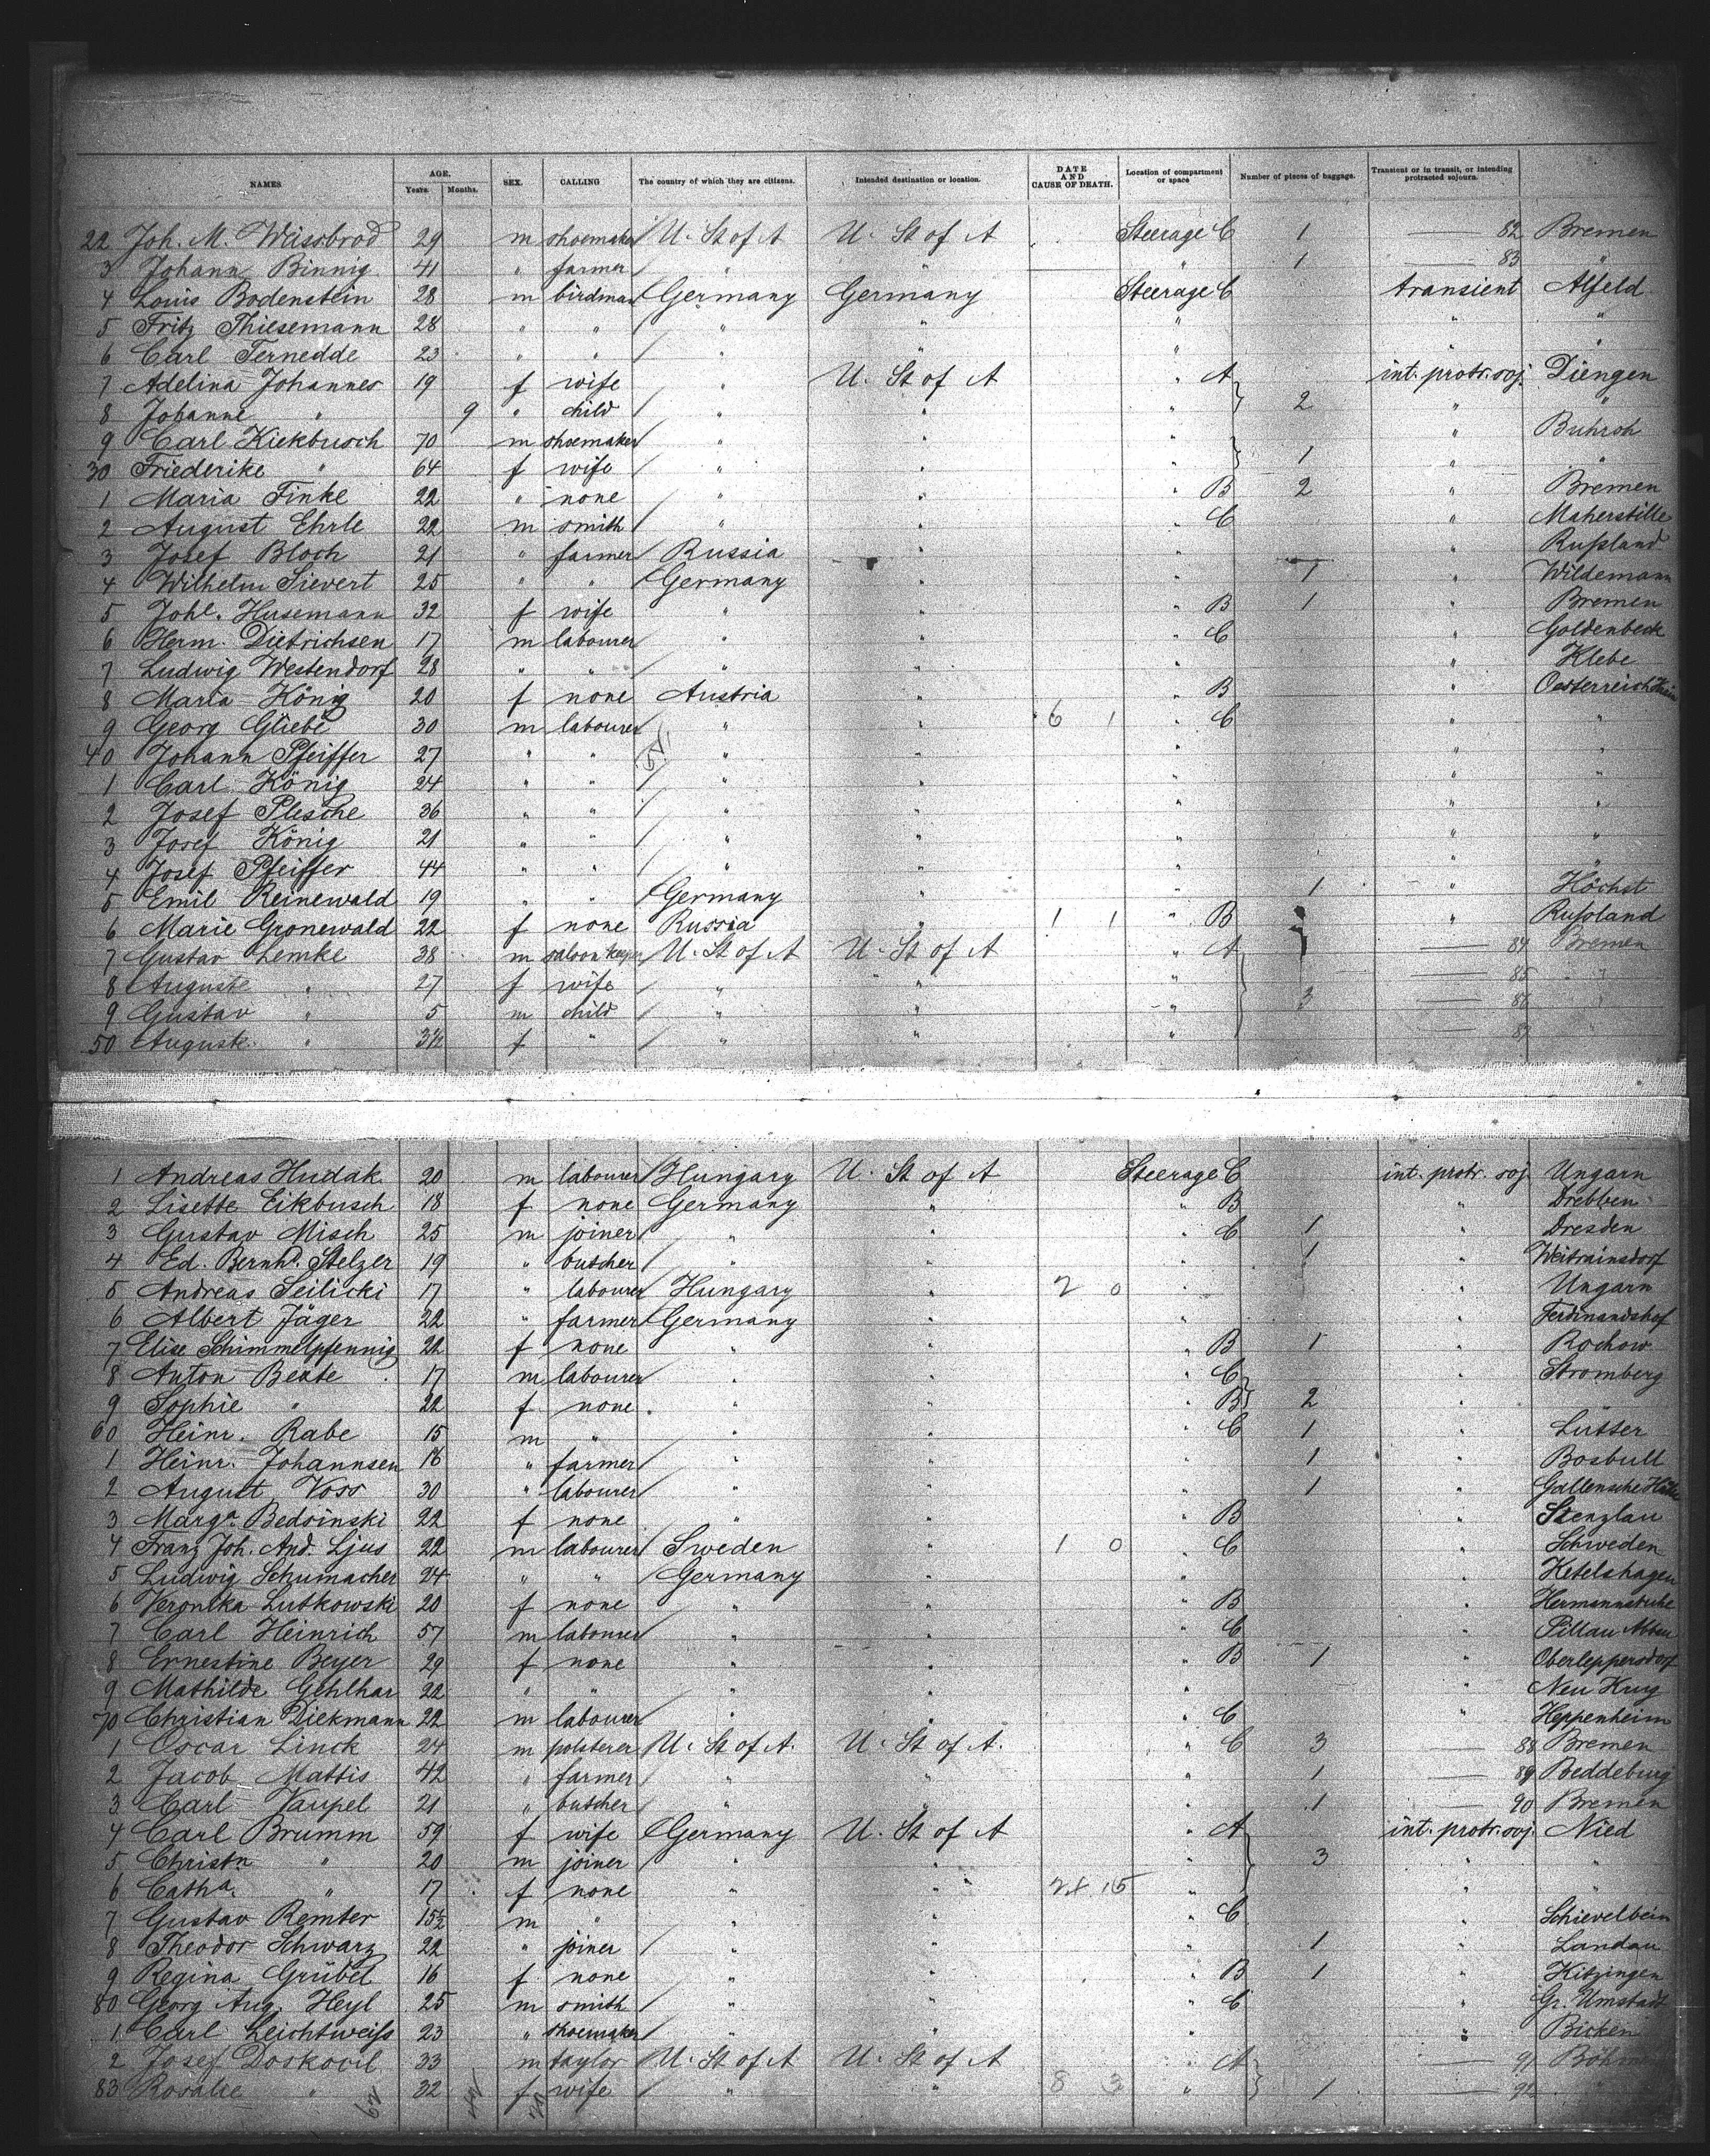 NAMES. AGE. Years. Months. SEX. CALLING The country of which they are citizens. Intended destination or location. DATE AND CAUSE OF DEATH. Location of compartment or space Number of pieces of baggage. Transient or in transit, or intending protracted sojourn.
22 Joh. M. Weissbrod 29 m shoemaker U. St of A U. St of A Steerage C 1 — 82 Bremen
3 Johann Binnig 41 " farmer " " " 1 — 83 "
4 Louis Bodenstein 28 m birdman Germany Germany Steerage C transient Alfeld
5 Fritz Thiesemann 28 " " " " " " "
6 Carl Ternedde 23 " " " " " " "
7 Adelina Johannes 19 f wife " U. St of A " A int. protr. soj. Diengen
8 Johanne " 9 " child " " " 2 " "
9 Carl Kiekbusch 70 m shoemaker " " " " Buhroh
30 Friederike " 64 f wife " " " 1 " "
1 Maria Finke 22 " none " " " B 2 " Bremen
2 August Ehrle 22 m smith " " " C " Maherstille
3 Josef Bloch 21 " farmer Russia " " " Rußland
4 Wilhelm Sievert 25 " " Germany " " 1 " Wildemann
5 Johe. Husemann 32 f wife " " " B 1 " Bremen
6 Herm. Dietrichsen 17 m labourer " " " C " Goldenbeck
7 Ludwig Westendorf 28 " " " " " " Klebe
8 Maria König 20 f none Austria " " B " Oesterreich
9 Georg Gliebe 30 m labourer " " 6 1 " C " "
40 Johann Pfeiffer 27 " " " " " " "
1 Carl König 24 " " " " " " "
2 Josef Plesche 36 " " " " " " "
3 Josef König 21 " " " " " " "
4 Josef Pfeiffer 44 " " " " " " "
5 Emil Reinewald 19 " " Germany " " 1 " Höchst
6 Marie Gronewald 22 f none Russia " 1 1 " B " Rußland
7 Gustav Lemke 38 m saloon keeper U. St of A U. St of A " A — 84 Bremen
8 Auguste " 27 f wife " " " — 85 "
9 Gustav " 5 m child " " " 3 — 86 "
50 Auguste " 3½ f " " " " — 87 "
1 Andreas Hudak 20 m labourer Hungary U. St of A Steerage C int. protr. soj. Ungarn
2 Lisette Eikbusch 18 f none Germany " " B " Drebben
3 Gustav Misch 25 m joiner " " " C 1 " Dresden
4 Ed. Bernhd. Stelzer 19 " butcher " " " 1 " Weitrainsdorf
5 Andreas Seilicki 17 " labourer Hungary " 2 0 " " Ungarn
6 Albert Jäger 22 " farmer Germany " " " Ferdinandshof
7 Elise Schimmelpfennig 22 f none " " " B 1 " Rochow
8 Anton Bexte 17 m labourer " " " C " Stromberg
9 Sophie " 22 f none " " " B 2 "
60 Heinr. Rabe 15 m " " " " C 1 " Lutter
1 Heinr. Johannsen 16 " farmer " " " 1 " Bosbull
2 August Voss 30 " labourer " " 1 "
3 Marga. Bedoinski 22 f none " " " B " Stenzlau
4 Franz Joh. And. Ljus 22 m labourer Sweden " 1 0 " C " Schweden
5 Ludwig Schumacher 24 " " Germany " " Ketelshagen
6 Veronika Lutkowski 20 f none " " " B " Hermannsruhe
7 Carl Heinrich 57 m labourer " " " C " Pillau
8 Ernestine Beyer 29 f none " " " B 1 " Oberleppersdorf
9 Mathilde Gehlhar 22 " " " " " " Neu Krug
70 Christian Diekmann 22 m labourer " " " C " Heppenheim
1 Oscar Linck 24 m polsterer U. St of A. U. St of A. " C 3 — 88 Bremen
2 Jacob Mattis 42 " farmer " " " 1 — 89 Beddeburg
3 Carl Vaupel 21 " butcher " " " 1 — 90 Bremen
4 Carl Brumm 59 f wife Germany U. St of A " A int. protr. soj. Nied
5 Christn " 20 m joiner " " " 3 " "
6 Catha. " 17 f none " " 24 15 " " "
7 Gustav Remter 15½ m " " " " C " Schievelbein
8 Theodor Schwarz 22 " joiner " " " 1 " Landau
9 Regina Grübel 16 f none " " " B 1 " Kitzingen
80 Georg Aug. Heyl 25 m smith " " " C " Gr. Umstadt
1 Carl Leichtweiß 23 " shoemaker " " " " Bicken
2 Josef Doskocil 33 m taylor U. St of A U. St of A " A — 91
83 Rosalie " 32 f wife " " 8 3 " 1 — 92